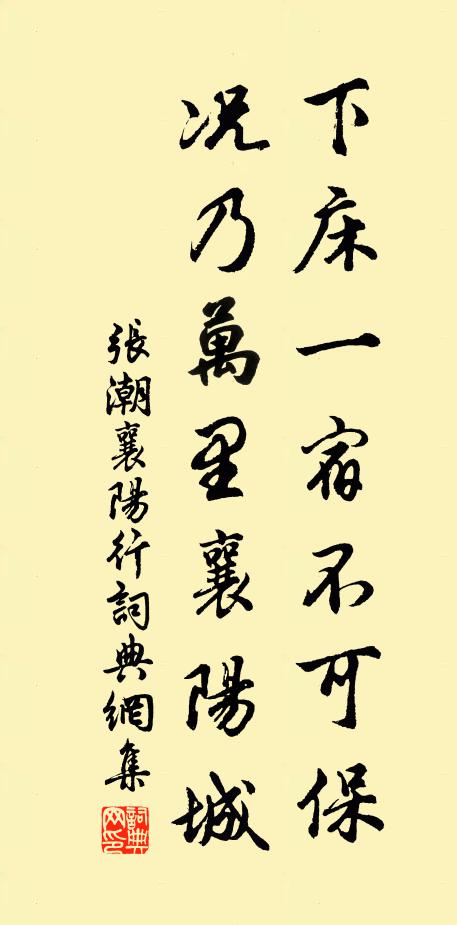 下床一宿不可保
况乃萬里襄陽城
張潮襄陽行詞典網集
詞典网印